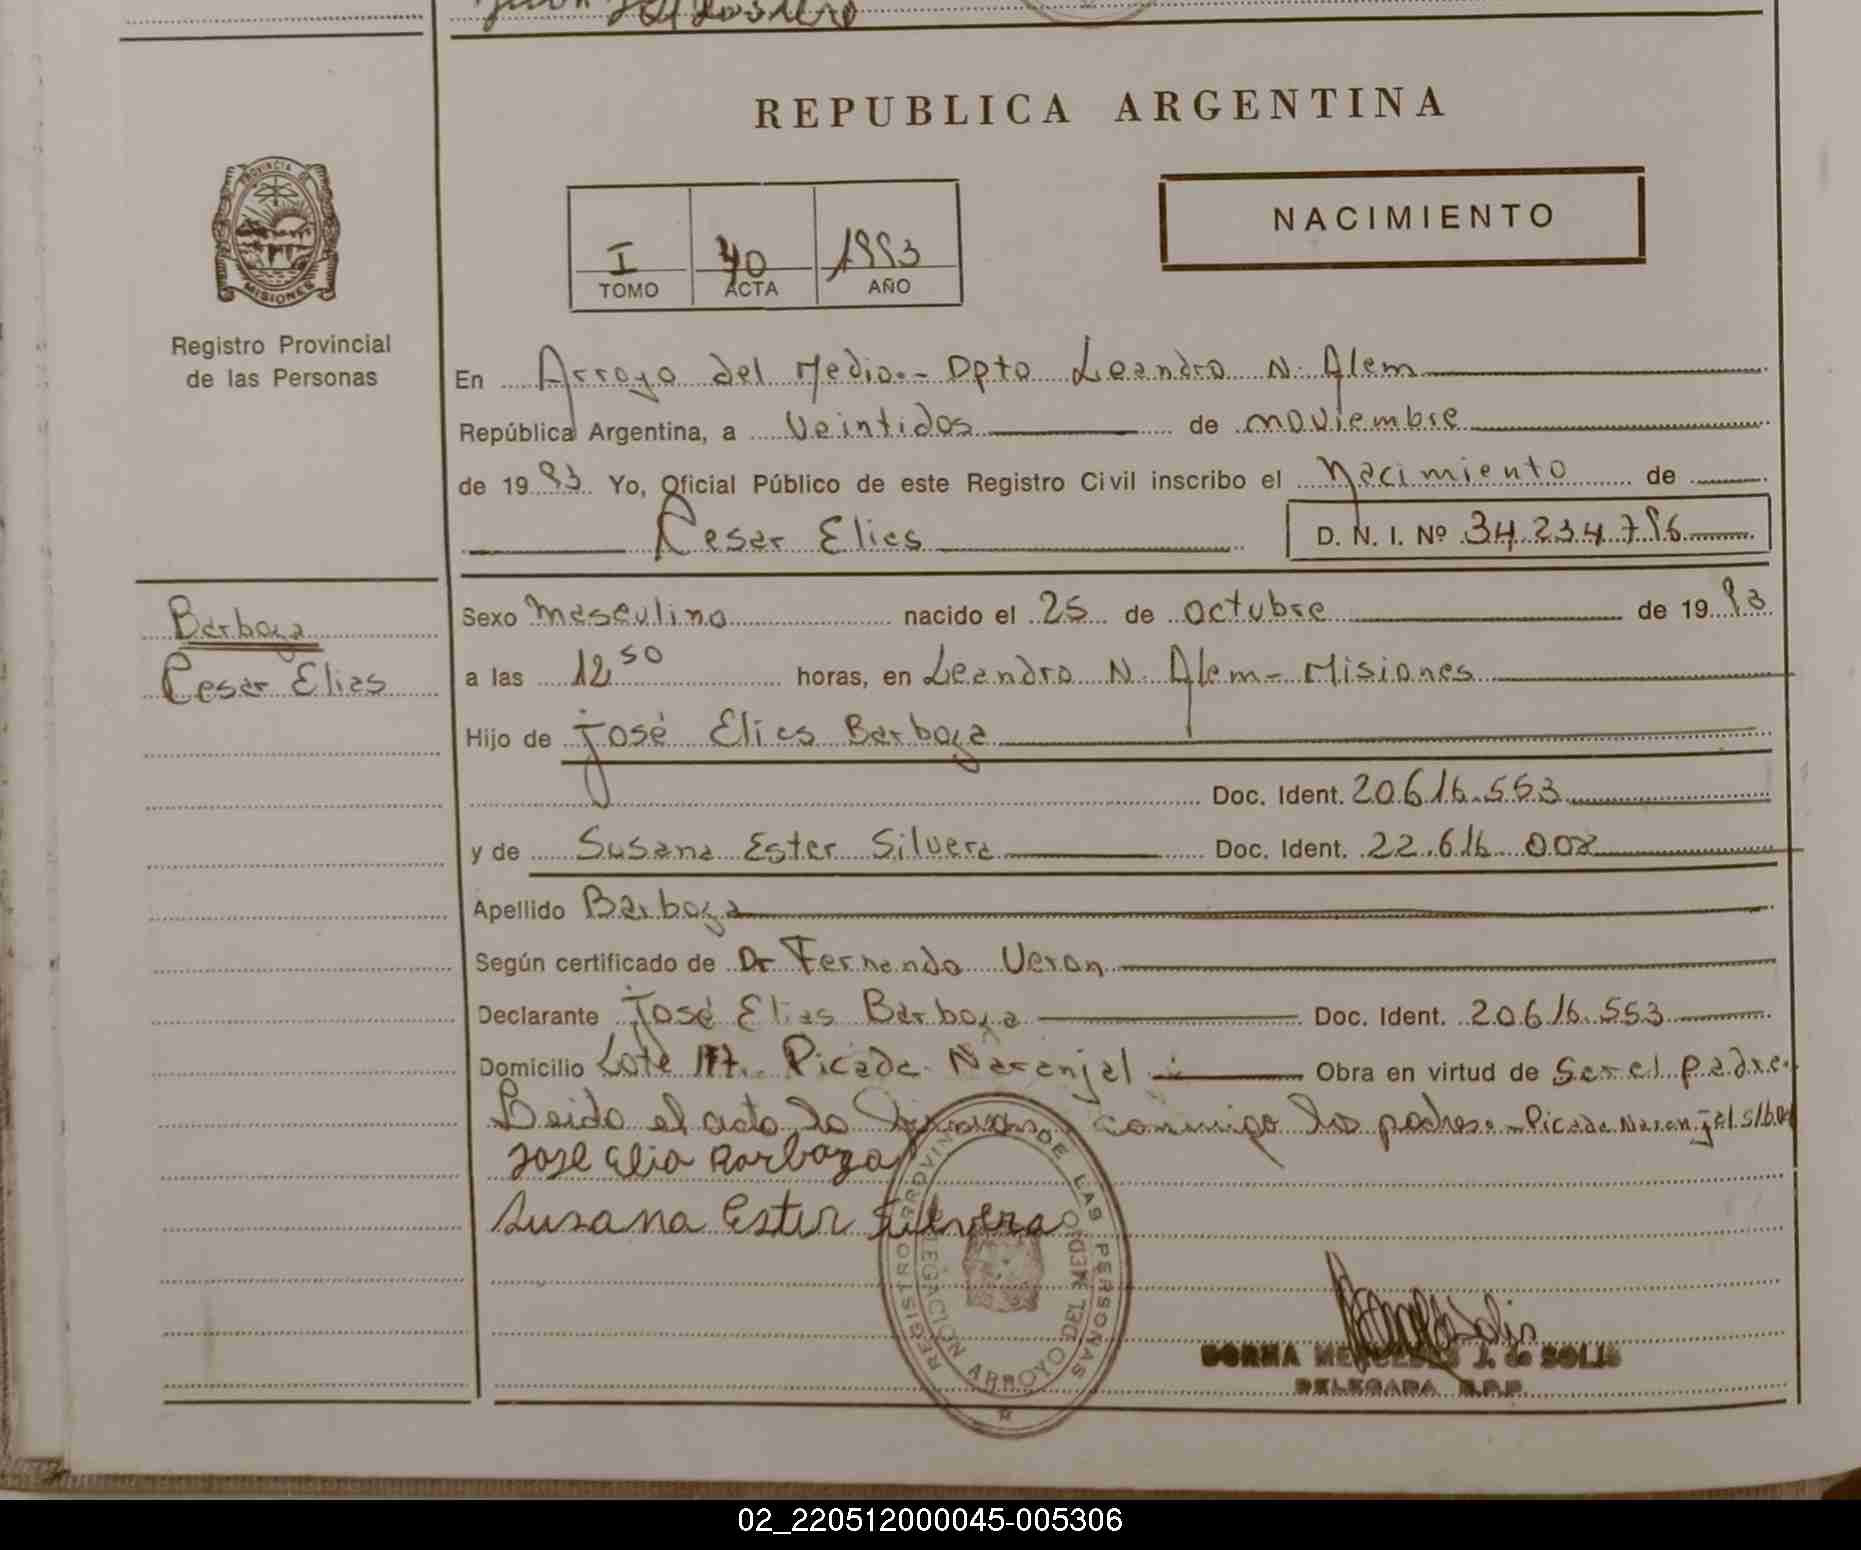 REPUBLICA ARGENTINA
PROVINCIA DE
MISIONES
Registro Provincial
de las Personas
NACIMIENTO
I 40 1993
TOMO ACTA AÑO
En Arroyo del Medio.- Dpto Leandro N. Alem
República Argentina, a Veintidos de noviembre
de 1993 Yo, Oficial Público de este Registro Civil inscribo el Nacimiento de
Cesar Elias D. N. I. Nº 34.234.796
Barboza
Cesar Elias
Sexo Masculino nacido el 25 de octubre de 1993
a las 12 50 horas, en Leandro N. Alem - Misiones
Hijo de José Elias Barboza
Doc. Ident. 20.616.553
y de Susana Ester Silvera Doc. Ident. 22.616.002
Apellido Barboza
Según certificado de Dr Fernando Veron
Declarante José Elias Barboza Doc. Ident. 20.616.553
Domicilio Lote 117. Picada Naranjal Obra en virtud de Ser el padre.
Leido el acta la firman conmigo los padres.- Picada Naranjal
Jose Elia Barboza
Susana Ester Silvera
REGISTRO PROVINCIAL DE LAS PERSONAS
DELEGACION ARROYO DEL MEDIO
NORMA MERCEDES J. de SOLIS
DELEGADA R.P.P.
02_220512000045-005306